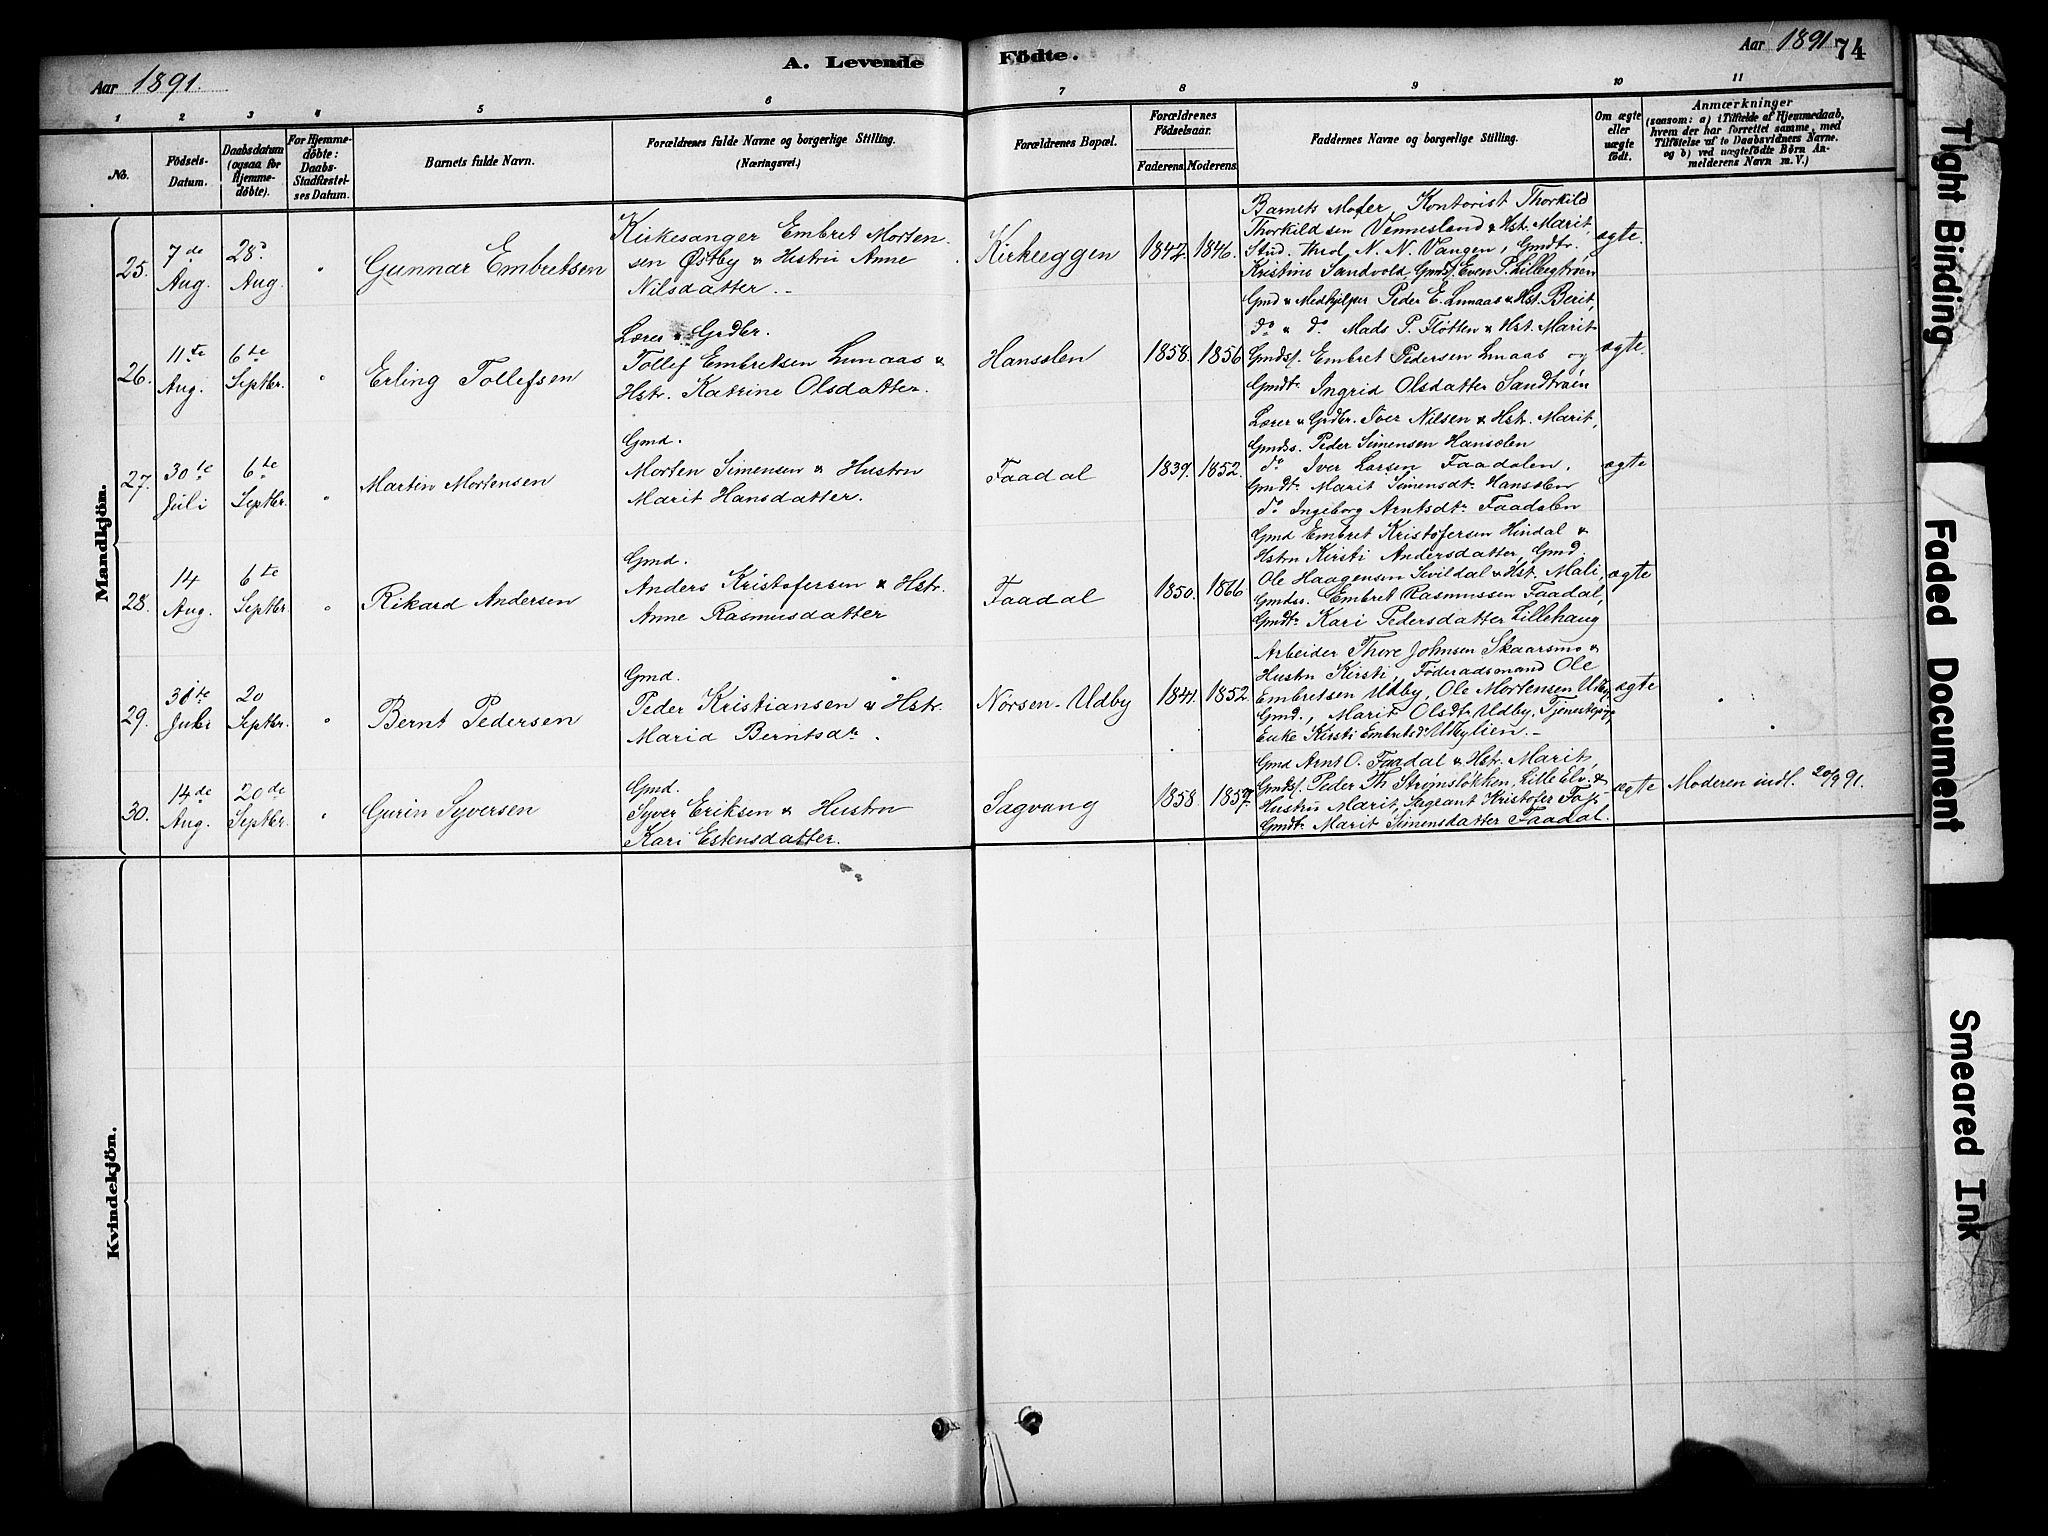 Aar 1891.
A. Levende Födte.
Aar 1891
74
1
2
3
4
5
6
7
8
9
10
11
No.
Födsels-
Datum.
Daabsdatum
(ogsaa for
Hjemme-
döbte).
For Hjemme-
döbte:
Daabs-
Stadfæstel-
ses Datum.
Barnets fulde Navn.
Forældrenes fulde Navne og borgerlige Stilling.
(Næringsvei.)
Forældrenes Bopæl.
Forældrenes
Födselsaar.
Faderens.
Moderens.
Faddernes Navne og borgerlige Stilling.
Om ægte
eller
uægte
födt.
Anmærkninger
(saasom: a) i Tilfælde af Hjemmedaab,
hvem der har forrettet samme, med
Tilföielse af to Daabsvidners Navne.
og b) ved uægtefödte Börn An-
melderens Navn m. V.)
Mandkjön.
25.
7de
Aug.
28d
Aug.
"
Gunnar Embretsen
Kirkesanger Embret Morten
sen Østby & Hustru Anne
Nilsdatter.
1842.
1846.
Barnets Moder, Kontorist Thorkild
Thorkildsen Vennesland & Hst. Marit,
Stud. theol. N. N. Vangen, Gmdtr.
Kristine Sandvold, Gmds. Even P. Lillegtrøen
ægte.
26.
11te
Aug.
6te
Septbr.
"
Erling Tollefsen
Lærer & Grdbr.
Tollef Embretsen Lunaas &
Hstr. Katrine Olsdatter.
Hansolen
1858.
1856
Gmd & Medhjelper Peder E. Lunaas & Hst. Berit,
do & do Mads P. Fløtten & Hst. Marit
Gmdss. Embret Pedersen Lunaas og
Gmdtr Ingrid Olsdatter Sandtrøen
ægte.
27.
30te
Juli
6te
Septbr.
"
Martin Mortensen
Gmd.
Morten Simensen & Hustru
Marit Hansdatter.
Faadal
1839.
1852.
Lærer & Grdbr. Iver Nilsen & Hst. Marit,
Gmdss. Peder Simensen Hansolen
do Iver Larsen Faadalen,
Gmdtr Marit Simensdtr Hansolen
do Ingeborg Arntsdtr Faadalen
ægte
28.
14
Aug.
6te
Septbr
"
Rikard Andersen
Gmd.
Anders Kristofersen & Hstr.
Anne Rasmusdatter
Faadal
1850.
1866
Gmd Embret Kristofersen Hindal &
Hstru Kirsti Andersdatter, Gmd.
Ole Haagensen Sivildal & Hst. Mali,
Gmdss. Embret Rasmussen Faadal,
Gmdtr Kari Pedersdatter Lillehaug
ægte
29.
20
Septbr.
"
Bernt Pedersen
Gmd.
Peder Kristiansen & Hstr.
Marid Berntsdtr.
Norsen-Udby
1841.
1852.
Arbeider Thore Johnsen Skaarsmo &
Hustru Kirsti, Føderaadsmand Ole
Embretsen Udby, Ole Mortensen Udby
Gmd., Marit Olsdtr Udby, Tjenestepige
Enke Kirsti Embretsdr Udbylien.
ægte
30.
14de
Aug.
20de
Septbr.
"
Gurin Syversen
Gmd.
Syver Eriksen & Hustru
Kari Estensdatter.
Sagvang
1858
1857.
Gmd Arnt O. Faadal & Hstr. Marit,
Gmdss. Peder Th. Strømsløkken, Lille Elv. &
Hustru Marit, Kristofer
Gmdtr Marit Simensdatter Faadal.
ægte
Moderen indl. 20/9 91.
Kvindekjön.
Tight Binding
Faded Document
Smeared Ink